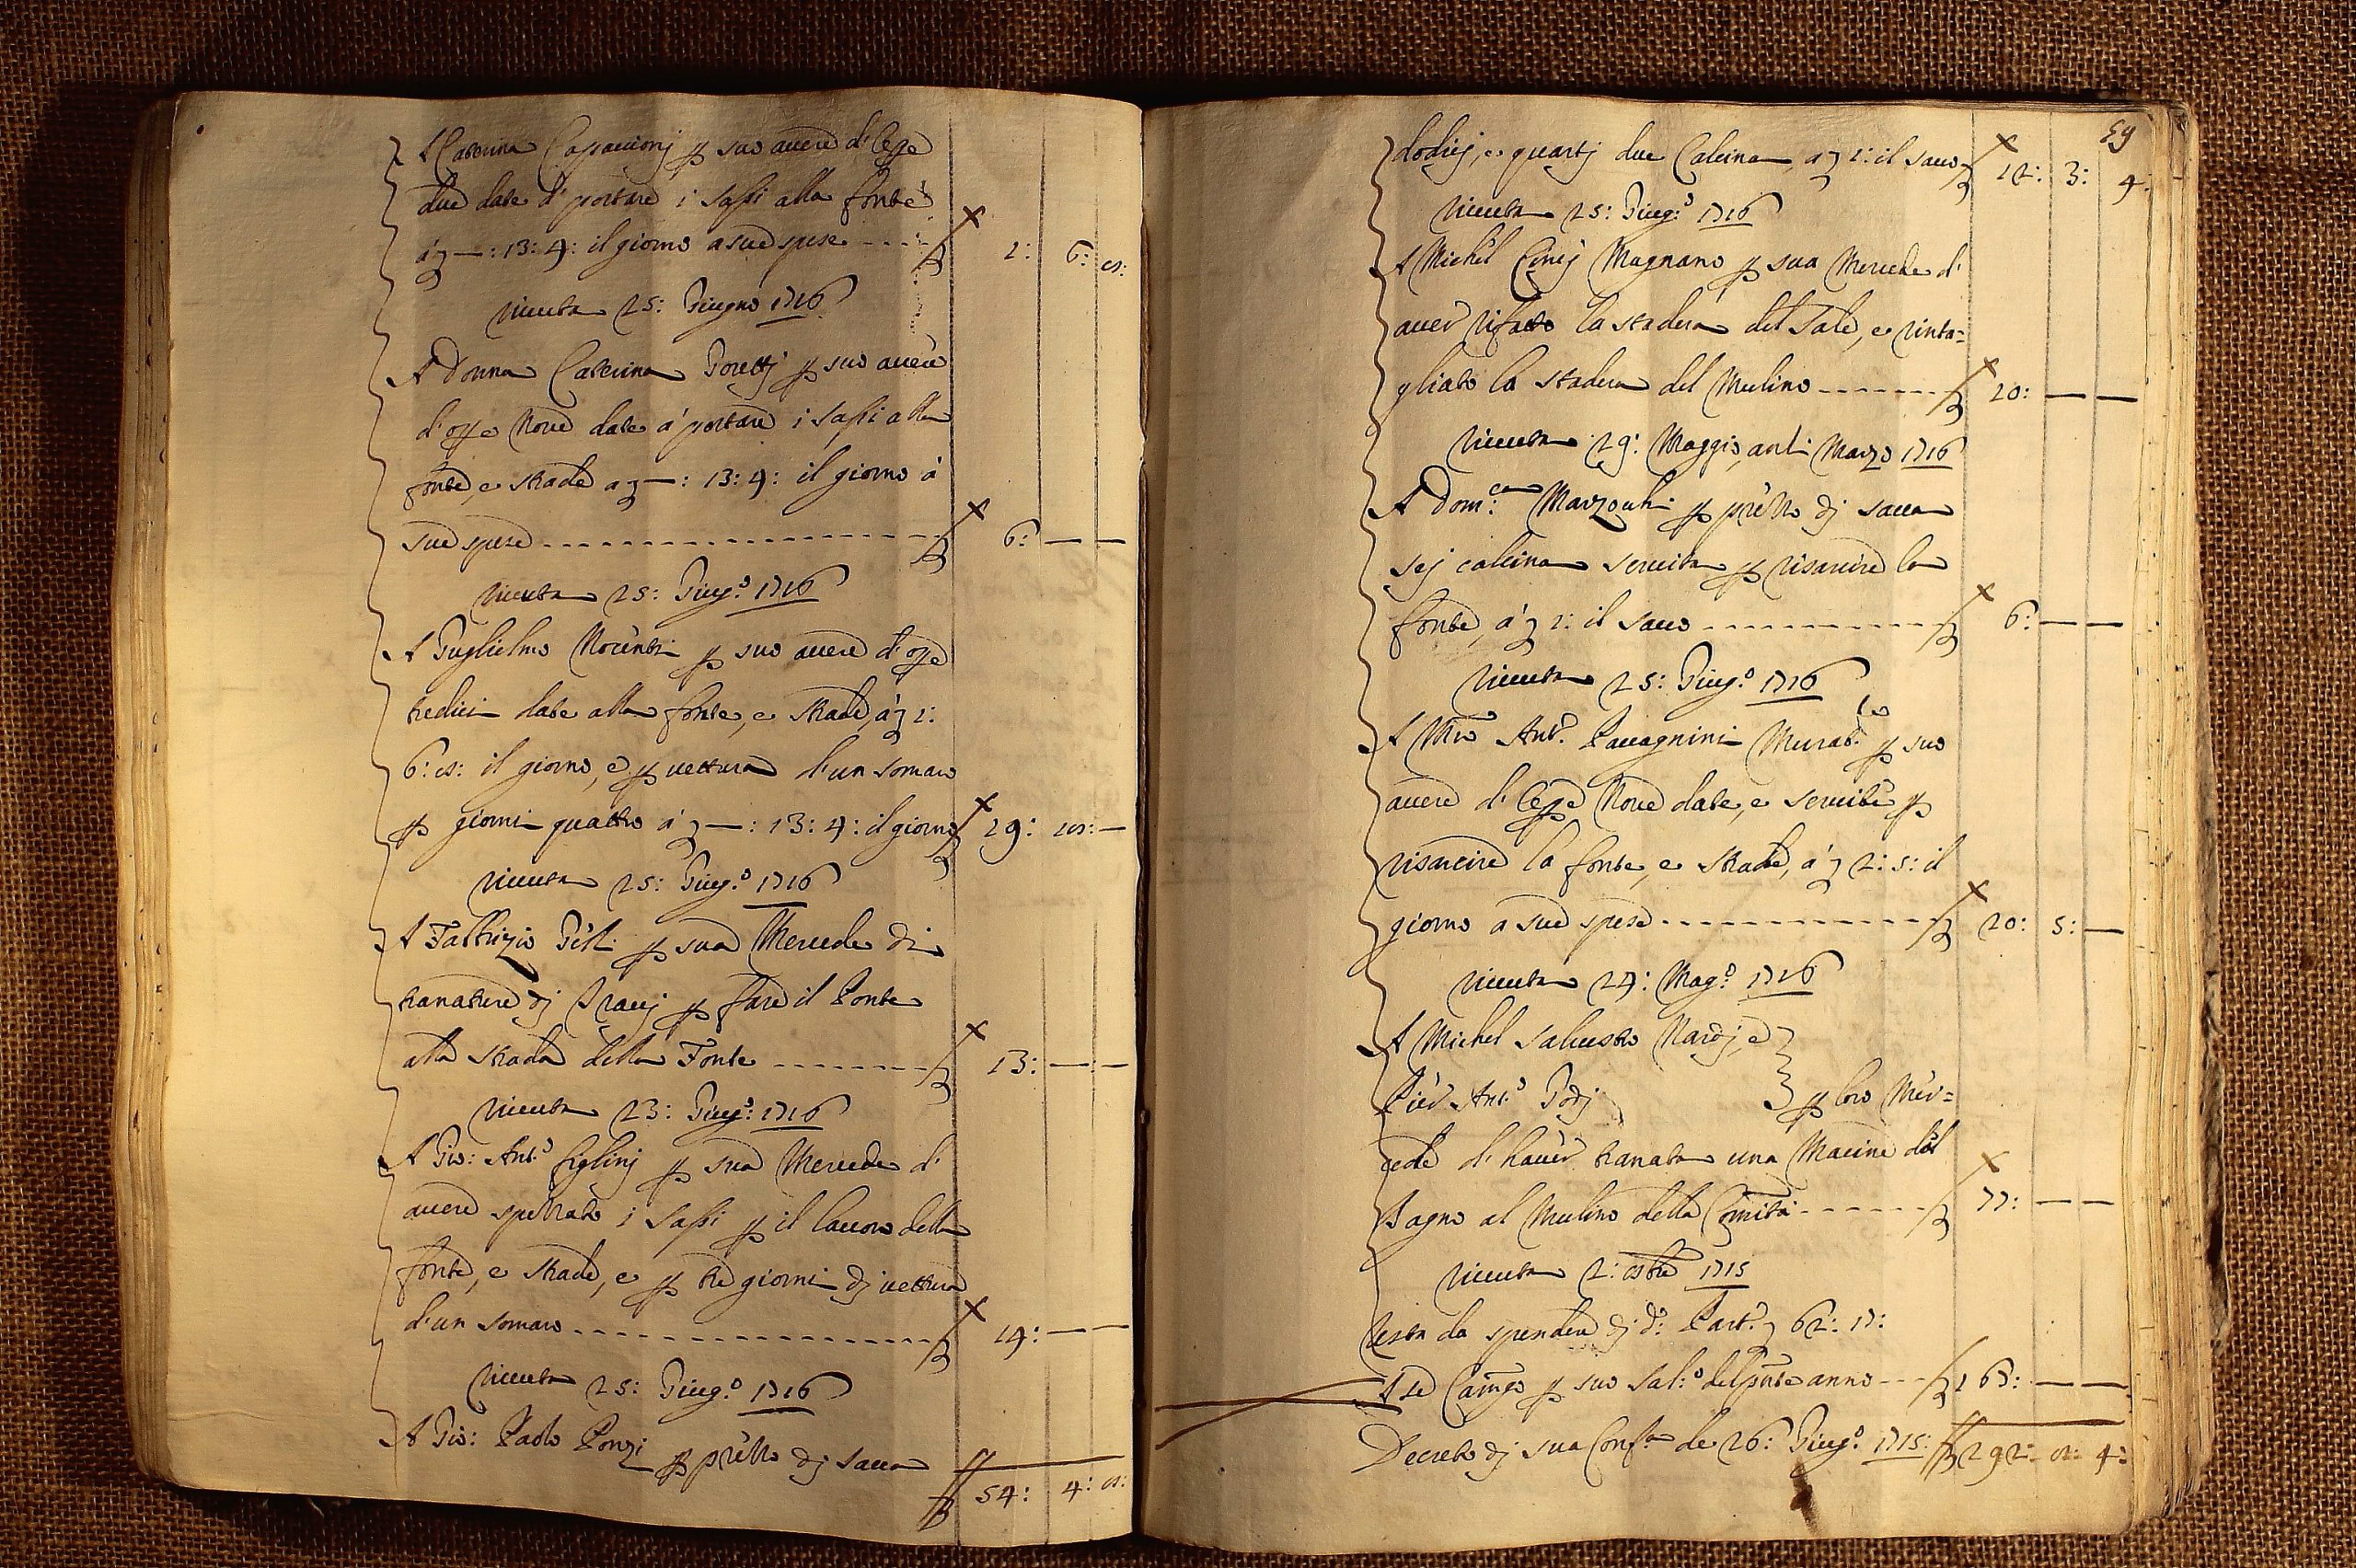 A Caterina Capaccionj p suo avere d'Opre
due date d' portare i sassi alla fonte
à z —: 13: 4: il giorno a sue spese ---- 1: 6: 8:
ricevuta 25: Giugno 1716
A Donna Caterina Goretti p suo avere
d'opre Nove date à portare i sassi alla
fonte, e strade a z —: 13: 4: il giorno à
sue spese ---- 6: — —
ricevuta 25: Giug.o 1716
A Guglielmo Norenti p suo avere d'opre
tredici date alla fonte, e strade, à z 1:
6: 8: il giorno, e p vettura d'un somaro
p giorni quattro à z —: 13: 4: il giorno 19: 10: —
ricevuta 25: Giug.o 1716
A Fabbrizio p sua Mercede di
tranature dj Travj p fare il Ponte
alla strada della Fonte ---- 13: — —
ricevuta 23: Giug.o: 1716
A Gio: Ant.o figlinj p sua Mercede d'
avere spetrato i sassi p il lavoro della
fonte, e strade, e p tre giorni dj vettura
d'un somaro ---- 14: — —
ricevuta 25: Giug.o 1716
A Gio: Paolo Ponzi p prezzo dj sacca
54: 4: 8:
59
dodicj, e quartj due Calcina, à z 1: il sacco 12: 3: 4:
ricevuta 25: Giug.o 1716
A Michel Cinej Magnano p sua Mercede d'
aver rifatto la stadera del Sale, e rinta=
gliato la stadera del Mulino ---- 20: — —
ricevuta 29: Maggio, anti Marzo 1716
A Dom.ca Marzochi p prezzo dj sacca
sej calcina servita p risarcire la
fonte, à z 1: il sacco ---- 6: — —
ricevuta 25: Giug.o 1716
A Mro Ant.o Pacagnini Murat.re p suo
avere d' Opre Nove date, e servite p
risarcire la fonte, e strade, à z 2: 5: il
giorno a sue spese ---- 20: 5: —
ricevuta 24: Mag.o 1716
A Michel salustro Nardj, e
Pier Ant.o Godj p loro Mer=
cede d' haver tranata una Macine dal
Bagno al Mulino della Comità ---- 77: — —
ricevuta 2: 8bre 1715
resta da spendere dj d.o Part.o z 62: 17:
A se Camgo p suo Sal:o del pnte anno --- 167: — —
Decreto dj sua Conf.a de 26: Giug.o 1715: 292: 8: 4: